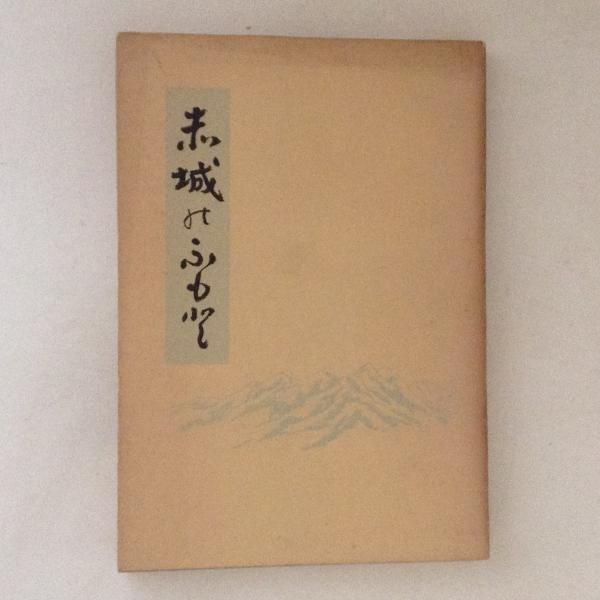 赤城のふもと